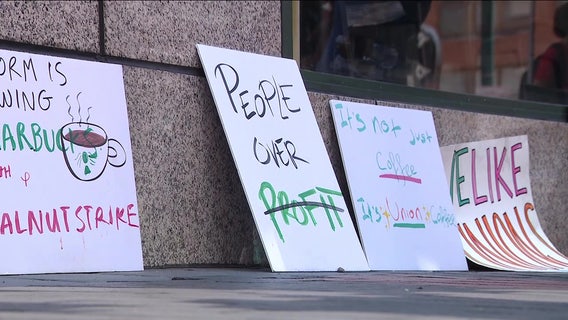 ORM IS
WING
ARBUC
H φ
ALNUTSTRIKE
PEOPLE
OVER
PROFIT
It's not Just
Coffee
It's Union
WE LIKE
UNIONS